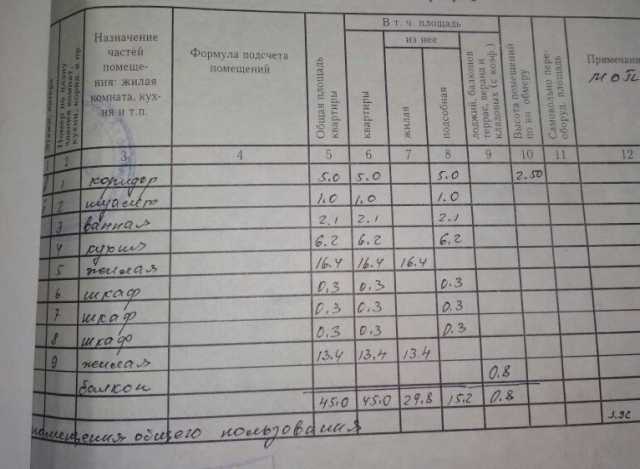 В т. ч. площадь
из нее
Назначение частей помещения: жилая комната, кухня и т.п.
Формула подсчета помещений
Общая площадь квартиры
квартиры
жилая
подсобная
лоджий, балконов террас, веранд и кладовых (с коэф.)
Высота помещений по вн обмеру
Самовольно переоборуд. площадь
Примечани
2 3 4 5 6 7 8 9 10 11 12
1 коридор 5.0 5.0 5.0 2.50
2 туалет 1.0 1.0 1.0
3 ванная 2.1 2.1 2.1
4 кухня 6.2 6.2 6.2
5 жилая 16.4 16.4 16.4
6 шкаф 0.3 0.3 0.3
7 шкаф 0.3 0.3 0.3
8 шкаф 0.3 0.3 0.3
9 жилая 13.4 13.4 13.4
балкон 0.8
45.0 45.0 29.8 15.2 0.8
помещения общего пользования